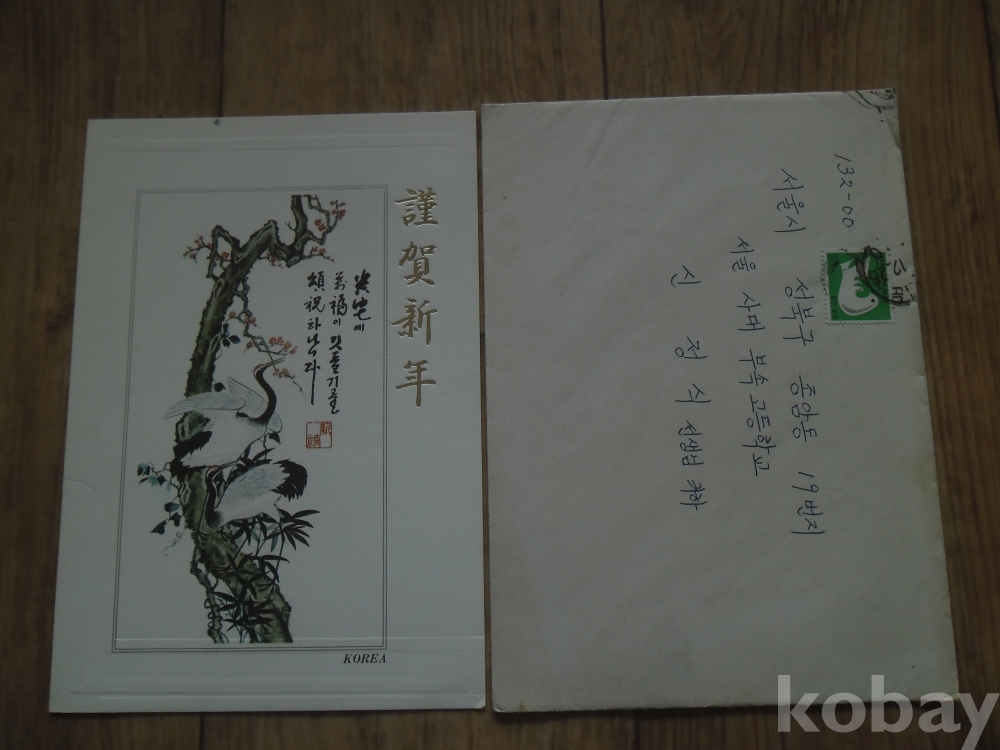 謹賀新年
貴宅에
萬福이 깃들기를
頌祝하나이다
KOREA
132-00
서울시 성북구 종암동 19번지
서울 사대 부속 고등학교
신 정 식 선생님 귀하
kobay